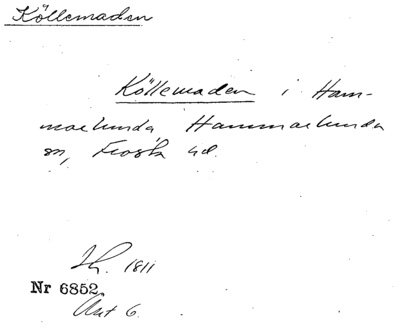 Köllemaden
Köllemaden i Ham-
marlunda, Hammarlunda
sn, Frosta hd.
1811
Nr 6852.
Akt 6.